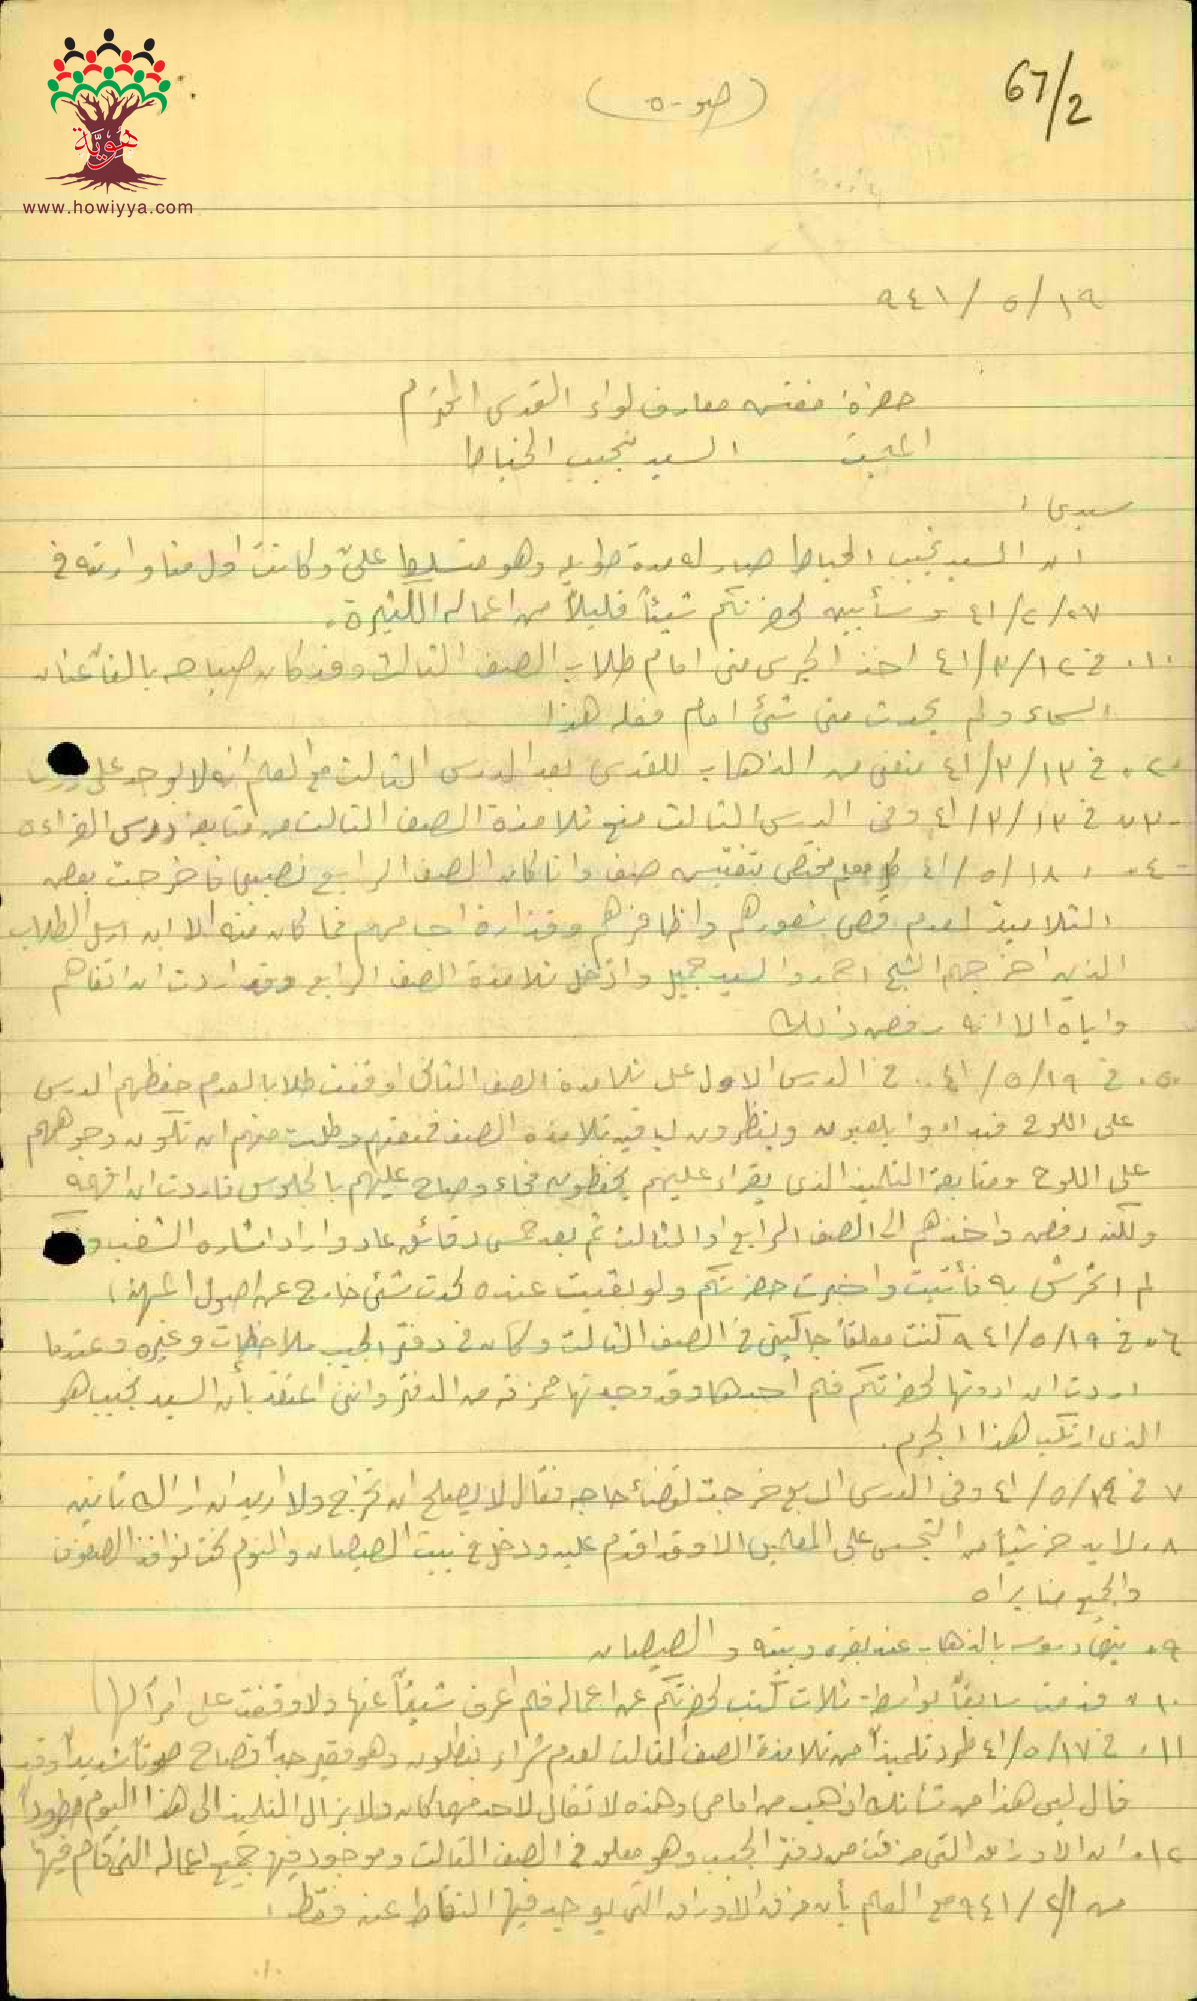 هويّة
www.howiyya.com
67/2
١٩/ ٥ /٩٤١
حضرة مفتش معارف لواء القدس المحترم
السيد نجيب الخياط
سيدي،
ان السيد نجيب الخياط صار له مدة طويلة وهو متسلط عليّ وكانت اول في
٢٧/ ٢/ ٤١ وسأبين لحضرتكم شيئاً قليلاً من اعماله الكثيرة.
١. في ١٢/ ٣/ ٤١ اخذ الجرس مني امام طلاب الصف الثالث وقد كان صياحه بالغاً عنان
السماء ولم يحدث مني شئ امام فعله هذا
٢. في ١٣/ ٣/ ٤١ منعني من الذهاب للقدس بعد الدرس الثالث مع العلم انه لا يوجد علي
٣. في ١٣/ ٣/ ٤١ وفي الدرس الثالث منع تلامذة الصف الثالث من متابعة درس القراءة
٤. ١٨/ ٥/ ٤١ كل معلم مختص بتفتيش صف وانا كان الصف الرابع نصيبي فاخرجت بعض
التلاميذ لعدم قص شعورهم واظافرهم وقذارة اجسامهم فما كان منه الا ان ارسل الطلاب
الذين اخرجهم الشيخ احمد والسيد جميل وادخل تلامذة الصف الرابع وقد اردت ان اتفاهم
واياه الا انه رفض ذلك
٥. في ١٩/ ٥/ ٤١ في الدرس الاول على تلامذة الصف الثاني اوقفت طلابا لعدم حفظهم الدرس
على اللوح فبداوا يلعبون وينظرون لباقية تلامذة الصف فمنعتهم وطلبت منهم ان تكون وجوههم
على اللوح ومتابعة التلميذ الذي يقراء عليهم يحفظون فجاء وصاح عليهم بالجلوس فاردت ان افهمه
ولكنه رفض واخذهم الى الصف الرابع او الثالث ثم بعد خمس دقائق عاد واراد اشارة الشغب
لم اتحرش به فأتيت واخبرت حضرتكم ولو بقيت عنده لحدث شئ خارج عن اصول المهنة)
٦. في ١٩/ ٥/ ٩٤١ كنت معلقاً جاكيتي في الصف الثالث وكان في دفتر الجيب ملاحظات وغيره وعندما
اردت ان اروتها لحضرتكم فلم اجدها وقد وجدتها ممزقة من الدفتر وانني اعتقد بأن السيد نجيب هو
الذي ارتكب هذا الجرم.
٧ في ١٩/ ٥/ ٤١ وفي الدرس الرابع خرجت لقضاء حاجة فقال لا يصلح ان تخرج ولا اريد ان اراك ثانية
٨. لا يدخر شيئا من التجسس على المعلمين الا وقد اقدم عليه ودخل في بيت الصيصان والنوم تحت نوافذ الصفوف
والجميع منا يراه
٩. بالذهاب عند بقره وبيته والصيصان
١٠. قدمت سابقاً بواسطة ثلاث كتب لحضرتكم عن اعماله فلم اعرف شيئاً عنها ولا وقفت على
١١. في ١٧/ ٥/ ٤١ طرد تلميذاً من تلامذة الصف الثالث لعدم شراء بنطلون وهو فقير جداً فصاح صوتاً شديداً وقد
قال ليس هذا من شأنك اذهب من امامي وهذه لا تقال لاحد مهما كان ولا يزال التلميذ الى هذا اليوم مطروداً
١٢. ان الاوراق التي مزقت من دفتر الجيب وهو معلق في الصف الثالث وموجود فيها جميع اعماله التي قام فيها
من /٩٤١ مع العلم بأن مزق الاوراق التي يوجد فيها النقاط عنه فقط.